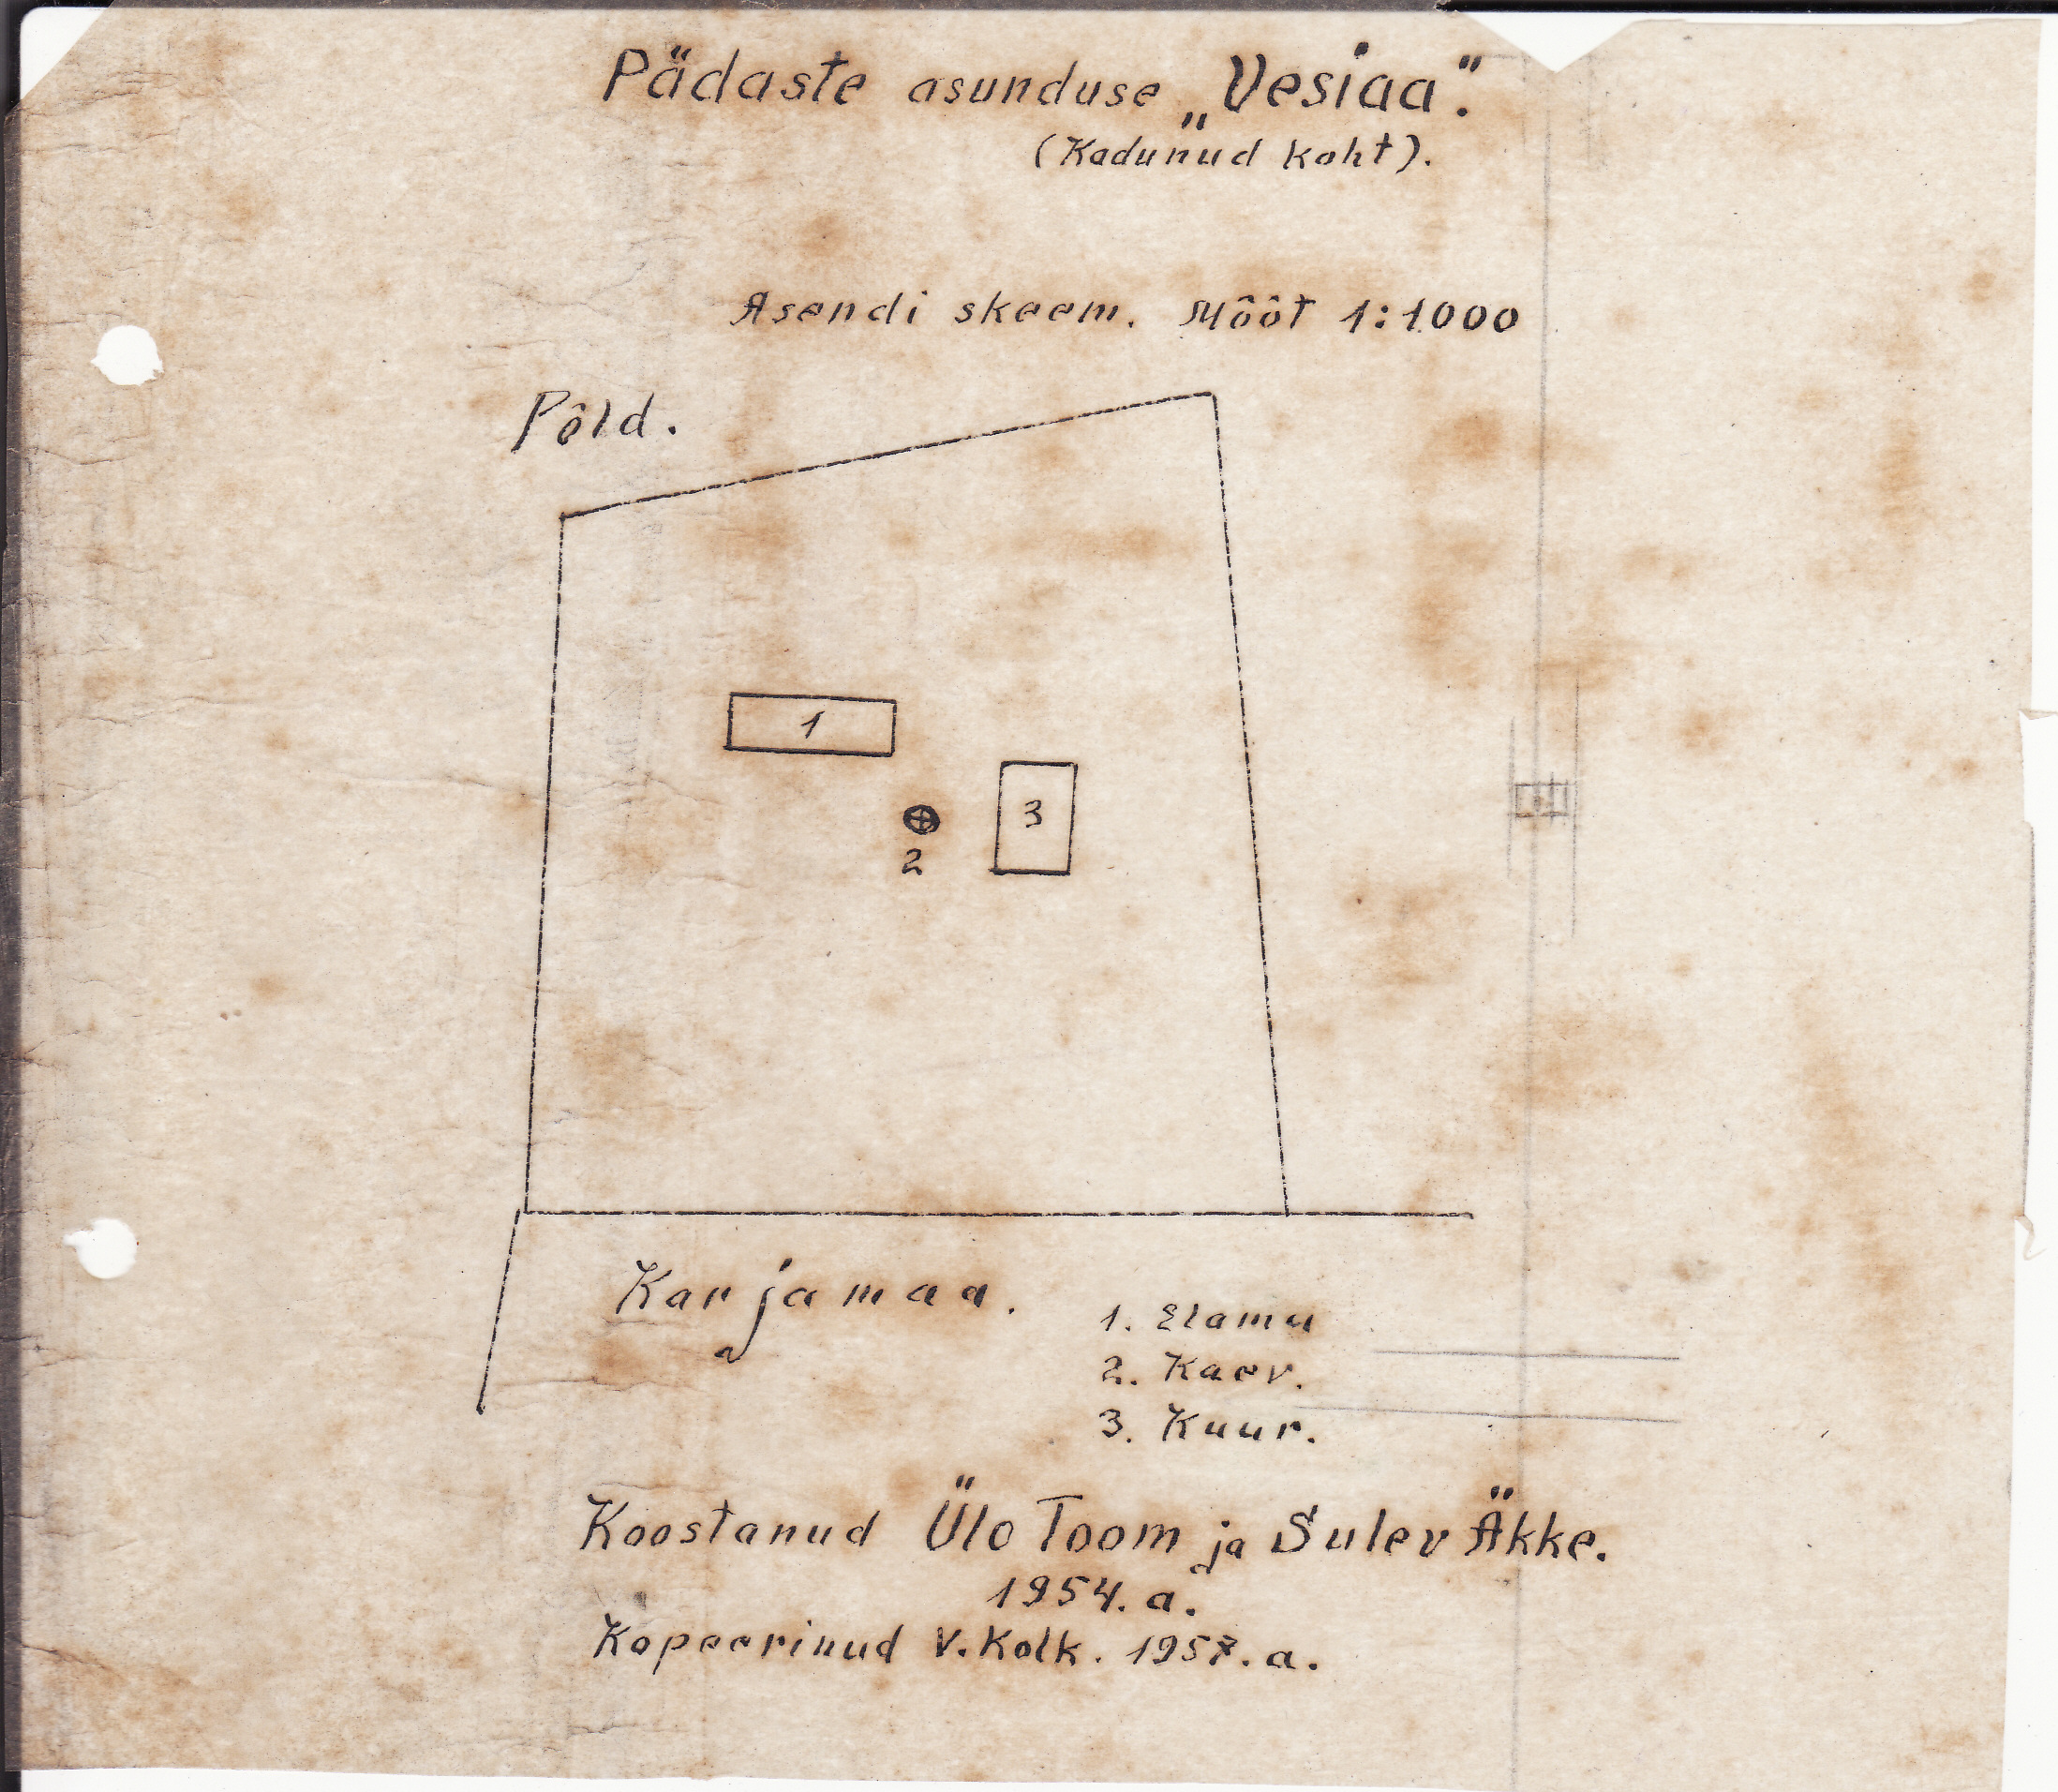 Pädaste asunduse „Vesiaa".
(Kadunud koht).
Asendi skeem. Mõõt 1:1000
Põld.
1
3
2
Karjamaa.
1. Elamu
2. Kaev.
3. Kuur.
Koostanud Ülo Toom ja Sulev Äkke.
1954. a.
Kopeerinud V. Kolk. 1957. a.